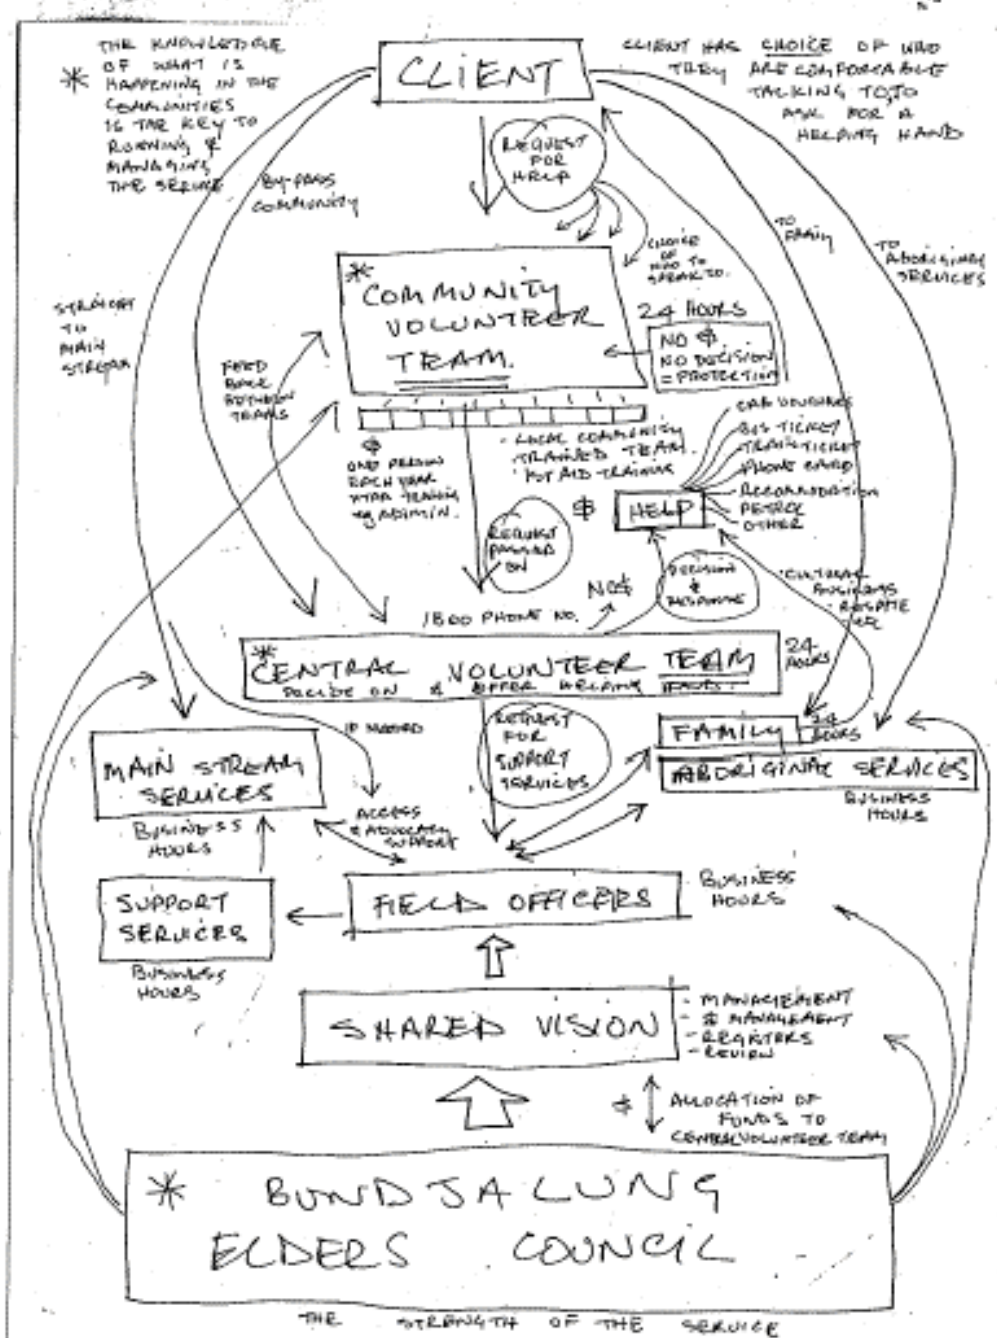 THE KNOWLEDGE
OF WHAT IS
* HAPPENING IN THE
COMMUNITIES
IS THE KEY TO
RUNNING &
MANAGING
THE SERVICE
CLIENT
CLIENT HAS CHOICE OF WHO
THEY ARE COMFORTABLE
TALKING TO, TO
ASK FOR A
HELPING HAND
REQUEST
FOR
HELP
BY-PASS
COMMUNITY
CHOICE
OF
WHO TO
SPEAK TO.
TO
FAMILY
TO
ABORIGINAL
SERVICES
STRAIGHT
TO
MAIN
STREAM
* COMMUNITY
VOLUNTEER
TEAM.
24 HOURS
NO $
NO DECISION
= PROTECTION
FEED
BACK
BETWEEN
TEAMS
$
ONE PERSON
EACH YEAR
TRAINING
ADMIN.
- LOCAL COMMUNITY
- TRAINED TEAM.
- 1ST AID TRAINING
CAB VOUCHERS
BUS TICKET
TRAIN TICKET
PHONE CARD
ACCOMMODATION
PETROL
OTHER
$ HELP
REQUEST
PASSED
ON
DECISION
&
RESPONSE
CULTURAL
BUSINESS
- RESPITE
ETC
1800 PHONE NO.
NO $
* CENTRAL VOLUNTEER TEAM
DECIDE ON & OFFER HELPING HAND.
24
HOURS
REQUEST
FOR
SUPPORT
SERVICES
IF NEEDED
FAMILY
24
HOURS
ABORIGINAL SERVICES
BUSINESS
HOURS
MAIN STREAM
SERVICES
BUSINESS
HOURS
ACCESS
& ADVOCACY
SUPPORT
SUPPORT
SERVICES
BUSINESS
HOURS
FIELD OFFICERS
BUSINESS
HOURS
SHARED VISION
- MANAGEMENT
- $ MANAGEMENT
- REGISTERS
- REVIEW
$
ALLOCATION OF
FUNDS TO
CENTRAL VOLUNTEER TEAM
* BUNDJALUNG
ELDERS COUNCIL
THE STRENGTH OF THE SERVICE